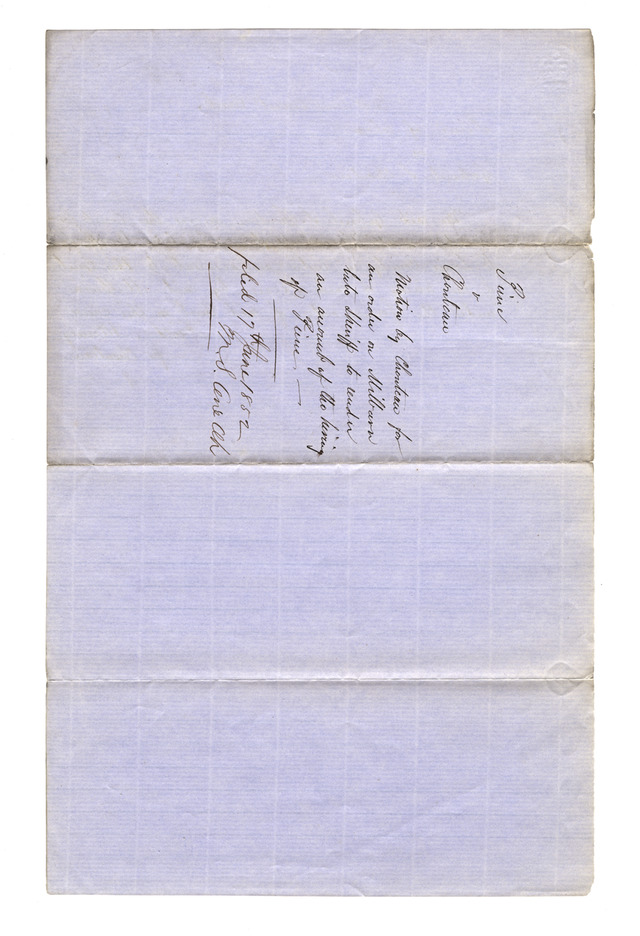 Pierre
v
Chouteau
Motion by Chouteau for
an order on Milburn
late Sheriff to render
an account of the hiring
of Pierre —
filed 17th June 1852
Clk